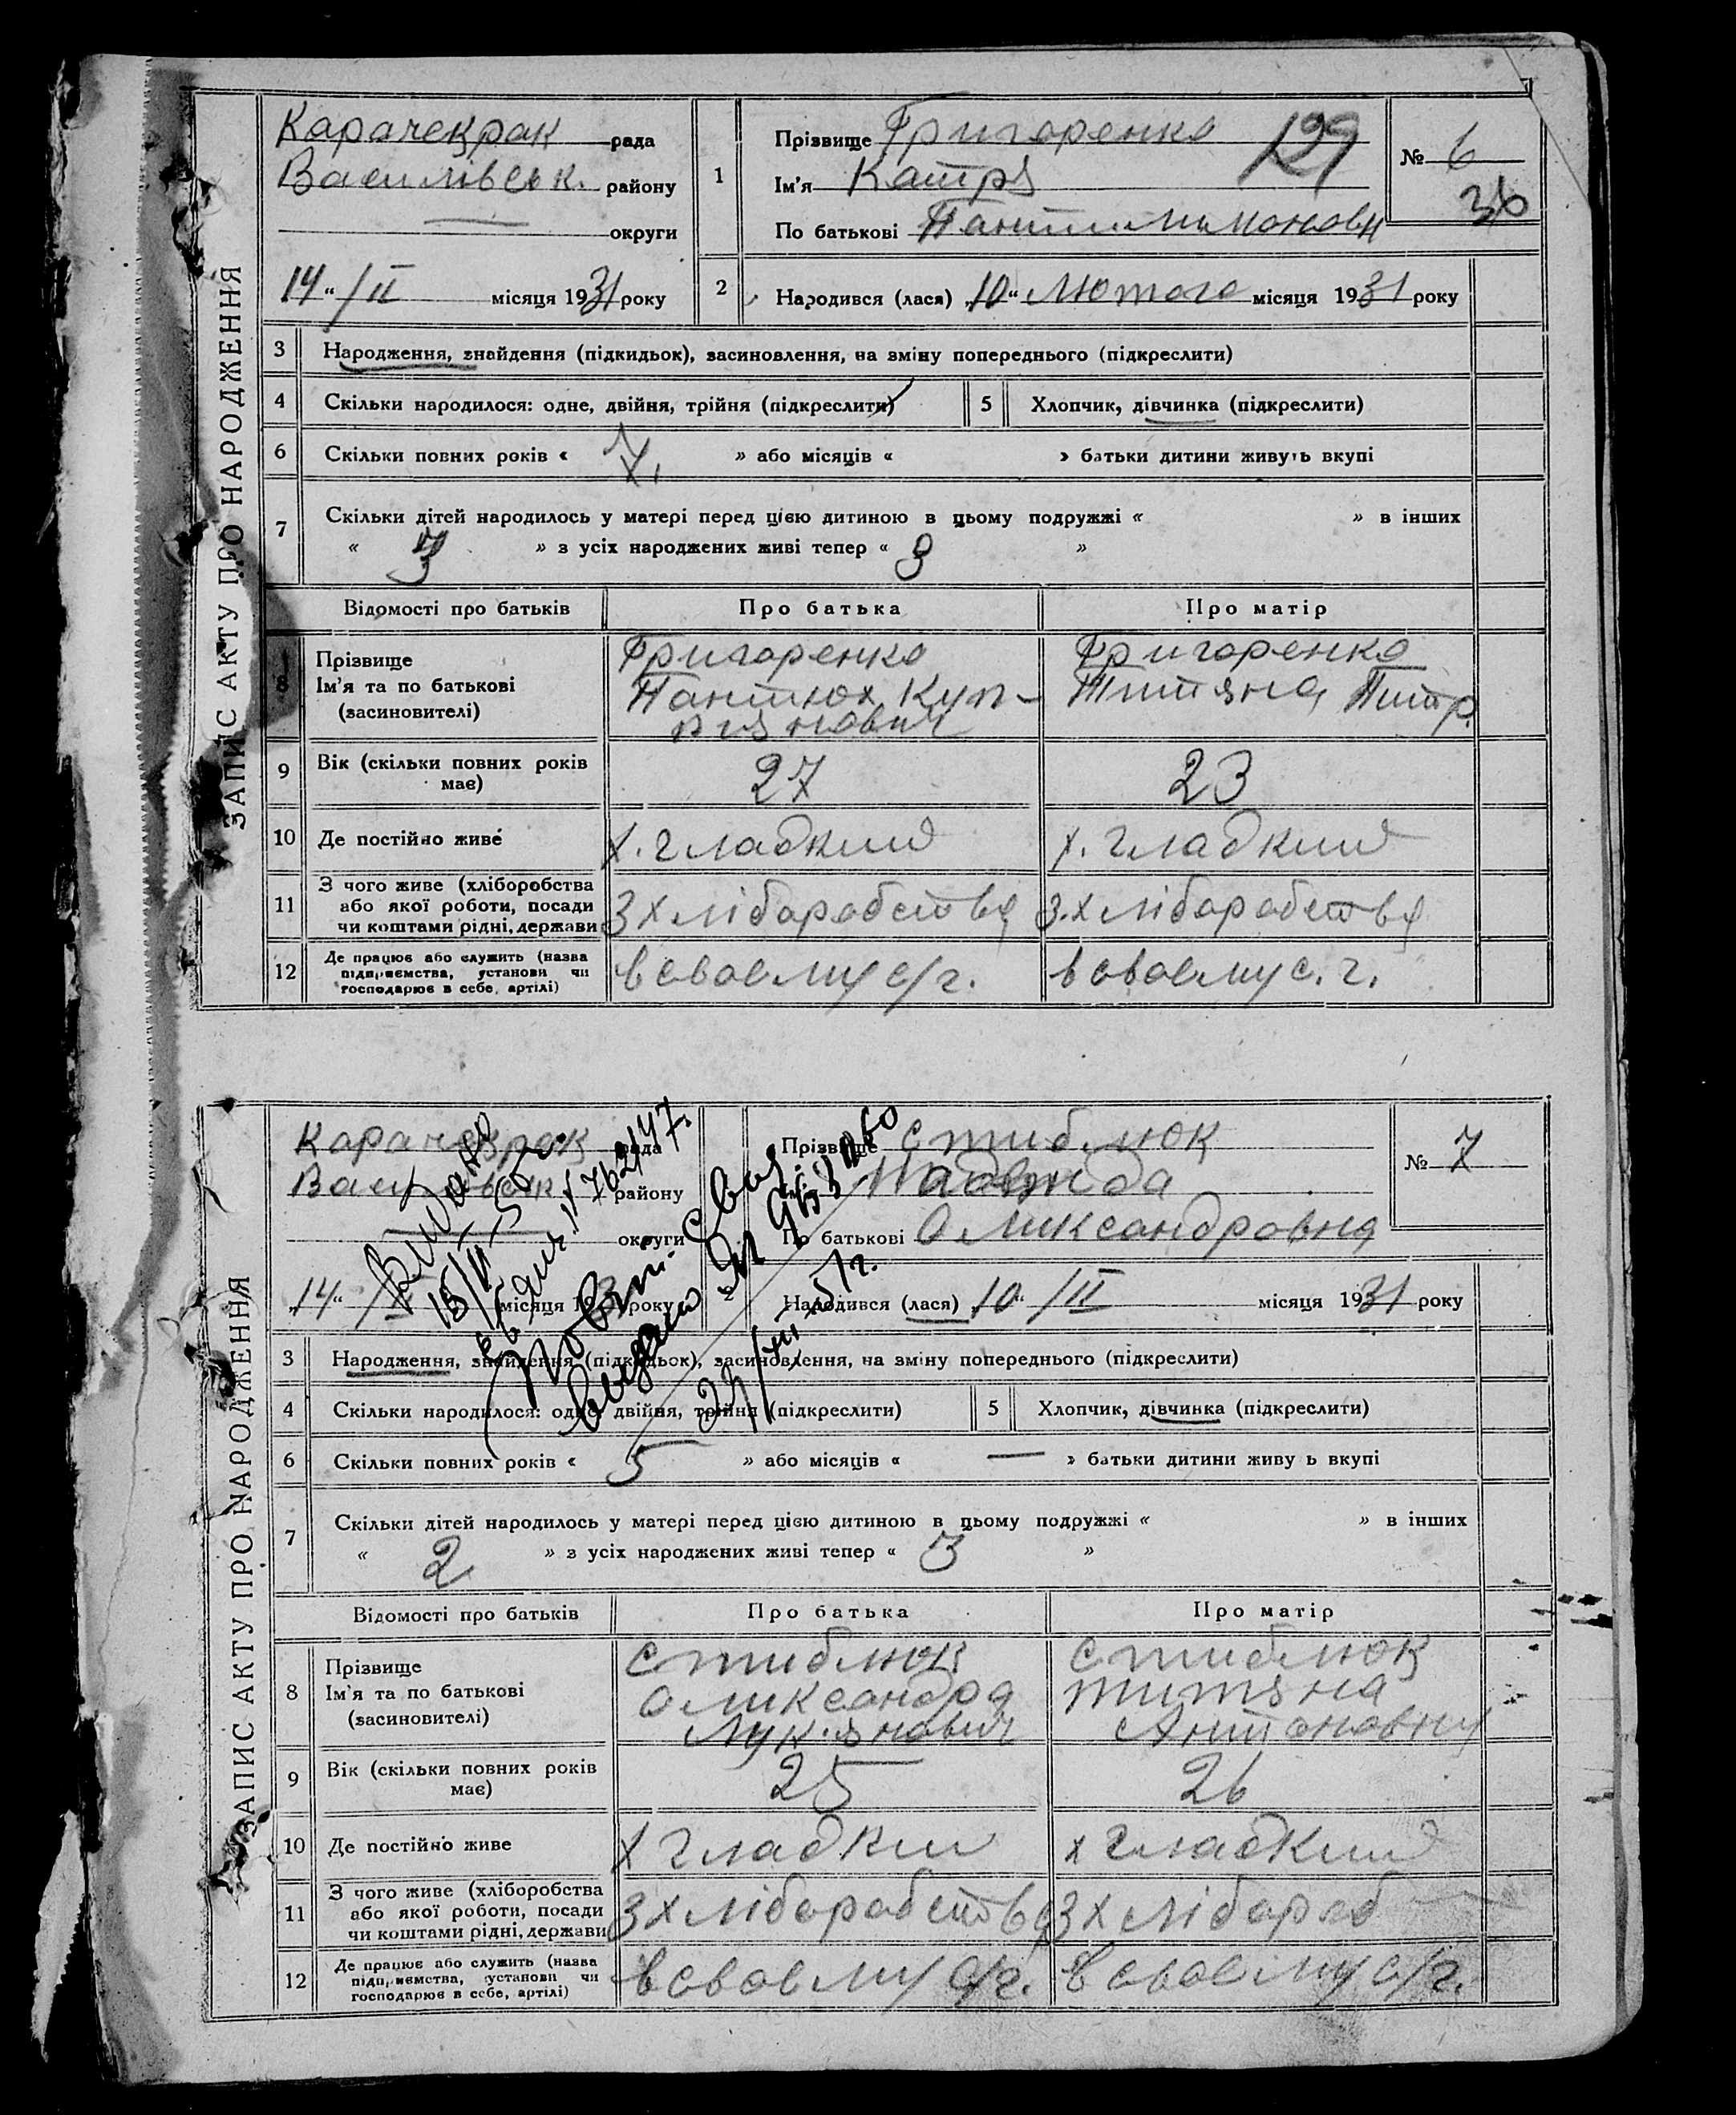 ЗАПИС АКТУ ПРО НАРОДЖЕННЯ
Карачекрак рада
Василівськ. району
округи
14 " / II місяця 1931 року
1 Прізвище Григоренко 129
Ім'я Катря
По батькові
№ 6
36
2 Народився (лася) „10“ Лютого місяця 1931 року
3 Народження, знайдення (підкидьок), засиновлення, на зміну попереднього (підкреслити)
4 Скільки народилося: одне, двійня, трійня (підкреслити) 5 Хлопчик, дівчинка (підкреслити)
6 Скільки повних років « 7. » або місяців « » батьки дитини живуть вкупі
7 Скільки дітей народилось у матері перед цією дитиною в цьому подружжі « » в інших
« 3 » з усіх народжених живі тепер « 3 »
Відомості про батьків Про батька Про матір
8 Прізвище Григоренко Григоренко
Ім'я та по батькові Пантюх Куп- Титяна Питр.
(засиновителі) пиянович
9 Вік (скільки повних років має) 27 23
10 Де постійно живе х. Гладкий х. Гладкий
11 З чого живе (хліборобства
або якої роботи, посади
чи коштами рідні, держави З хліборобства З.хліборобства
12 Де працює або служить (назва
підприємства, установи чи
господарює в себе, артілі) в своєму с/г. в своєму с. г.
ЗАПИС АКТУ ПРО НАРОДЖЕННЯ
Карачекрак рада
Василівськ району
округи
„14“ / II місяця 1931 року
Видано
Повт. свид
выдано
Прізвище Стиблюк
Надежда
По батькові Олександровна
№ 7
2 Народився (лася) „10“ / II місяця 1931 року
3 Народження, знайдення (підкидьок), засиновлення, на зміну попереднього (підкреслити)
4 Скільки народилося: одне, двійня, трійня (підкреслити) 5 Хлопчик, дівчинка (підкреслити)
6 Скільки повних років « 5 » або місяців « — » батьки дитини живу ь вкупі
7 Скільки дітей народилось у матері перед цією дитиною в цьому подружжі « » в інших
« 2 » з усіх народжених живі тепер « 3 »
Відомості про батьків Про батька Про матір
8 Прізвище Стиблюк Стиблюк
Ім'я та по батькові Олександра Титяна
(засиновителі) Лук'янович Антоновна
9 Вік (скільки повних років має) 25 26
10 Де постійно живе х Гладкий х Гладкий
11 З чого живе (хліборобства
або якої роботи, посади
чи коштами рідні, держави З хліборобства З хлібороб
12 Де працює або служить (назва
підприємства, установи чи
господарює в себе, артілі) в своєму с/г. в своєму с/г.